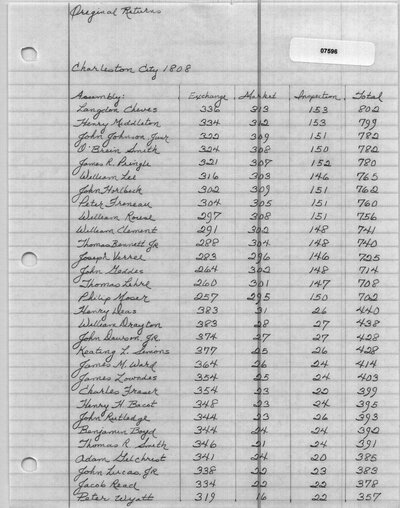 Original Returns
07596
Charleston City 1808
Assembly: Exchange Market Inspection Total
Langdon Cheves 336 313 153 802
Henry Middleton 334 312 153 799
John Johnson, Junr 322 309 151 782
O'Brein Smith 324 308 150 782
James R. Pringle 321 307 152 780
William Lee 316 303 146 765
John Horlbeck 302 309 151 762
Peter Freneau 304 305 151 760
William Rouse 297 308 151 756
William Clement 291 302 148 741
Thomas Bennett Jr 288 304 148 740
Joseph Verree 283 296 146 725
John Geddes 264 302 148 714
Thomas Lehre 260 301 147 708
Philip Moser 257 295 150 702
Henry Deas 383 31 26 440
William Drayton 383 28 27 438
John Dawson, JR. 374 27 27 428
Keating L. Simons 377 25 26 428
James M. Ward 364 26 24 414
James Lowndes 354 25 24 403
Charles Fraser 354 23 22 399
Henry H. Bacot 348 23 24 395
John Rutledge 344 23 26 393
Benjamin Boyd 344 24 24 392
Thomas R. Smith 346 21 24 391
Adam Gilchrist 341 24 20 385
John Lucas, JR 338 22 23 383
Jacob Read 334 22 22 378
Peter Wyatt 319 16 22 357